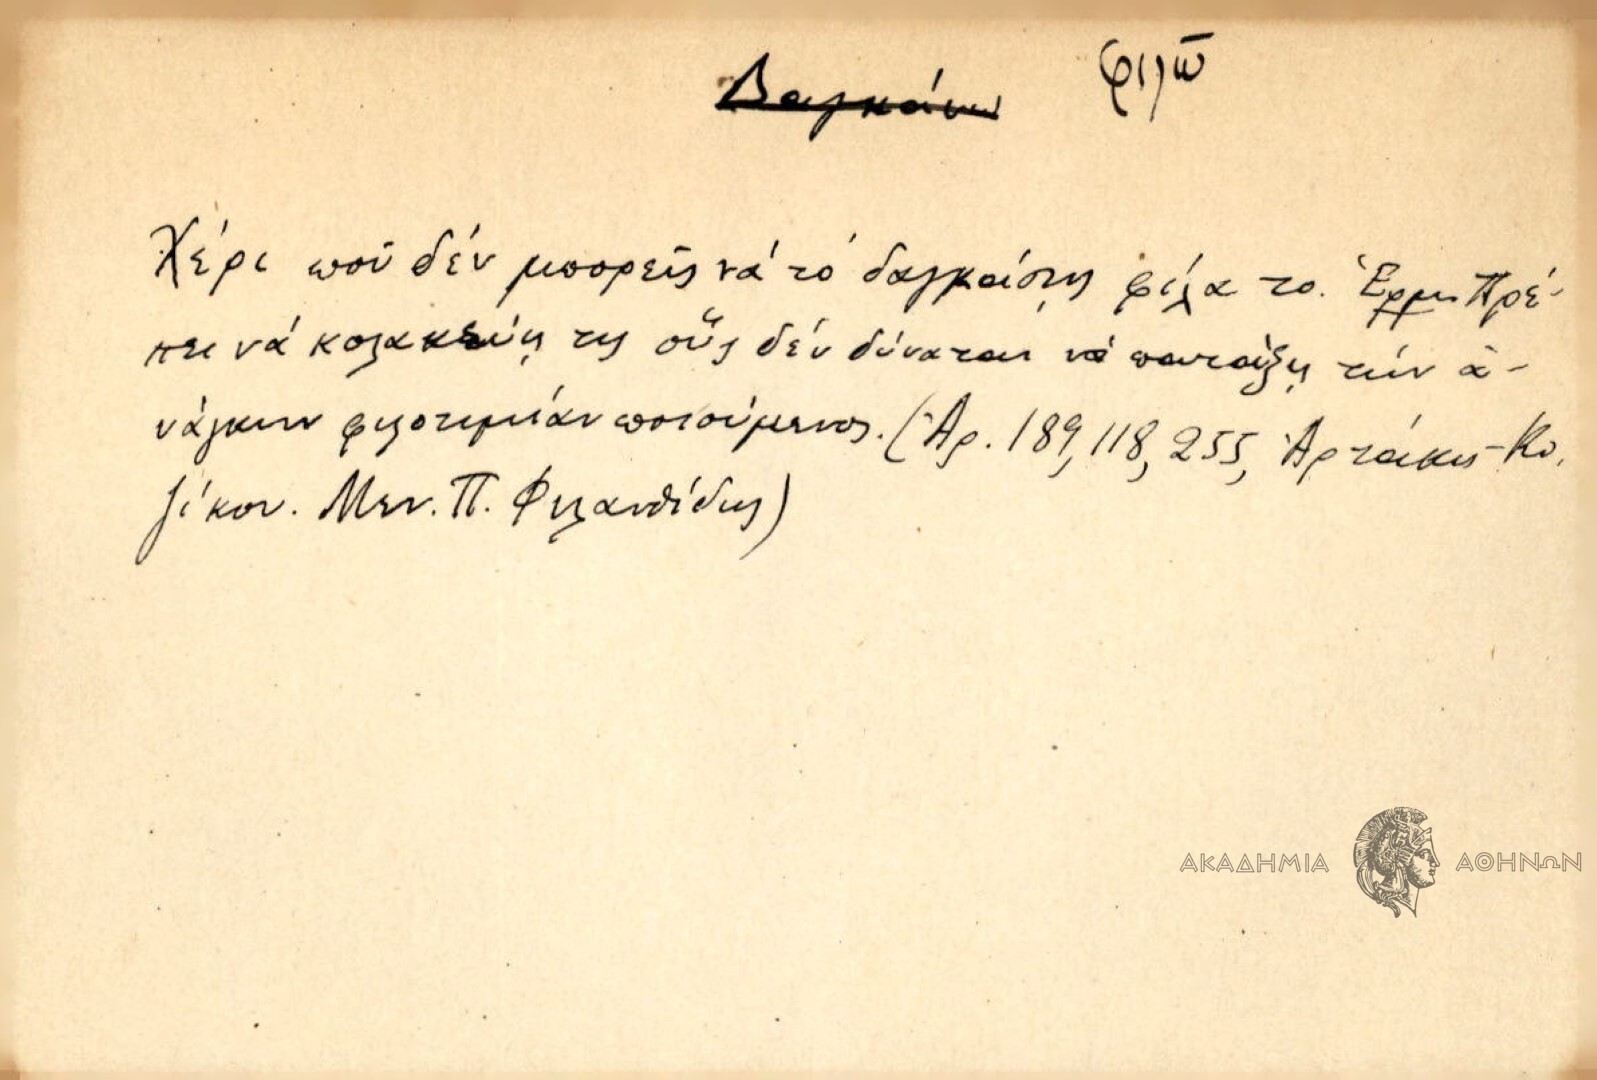 ~~Δαγκάνω~~ φιλῶ
Χέρι ποῦ δέν μπορεῖς νά τό δαγκάσῃς φίλα το. Ἑρμ. Πρέ-
πει νά κολακεύῃ τις οὕς δέν δύναται νά πατάξῃ τήν ἀ-
νάγκην φιλοτιμίαν ποιούμενος. (Ἀρ. 189, 118, 255, Ἀρτάκης-Κυ.
ζίκου. Μεν. Π. Φιλανθίδης)
ΑΚΑΔΗΜΙΑ ΑΘΗΝΩΝ